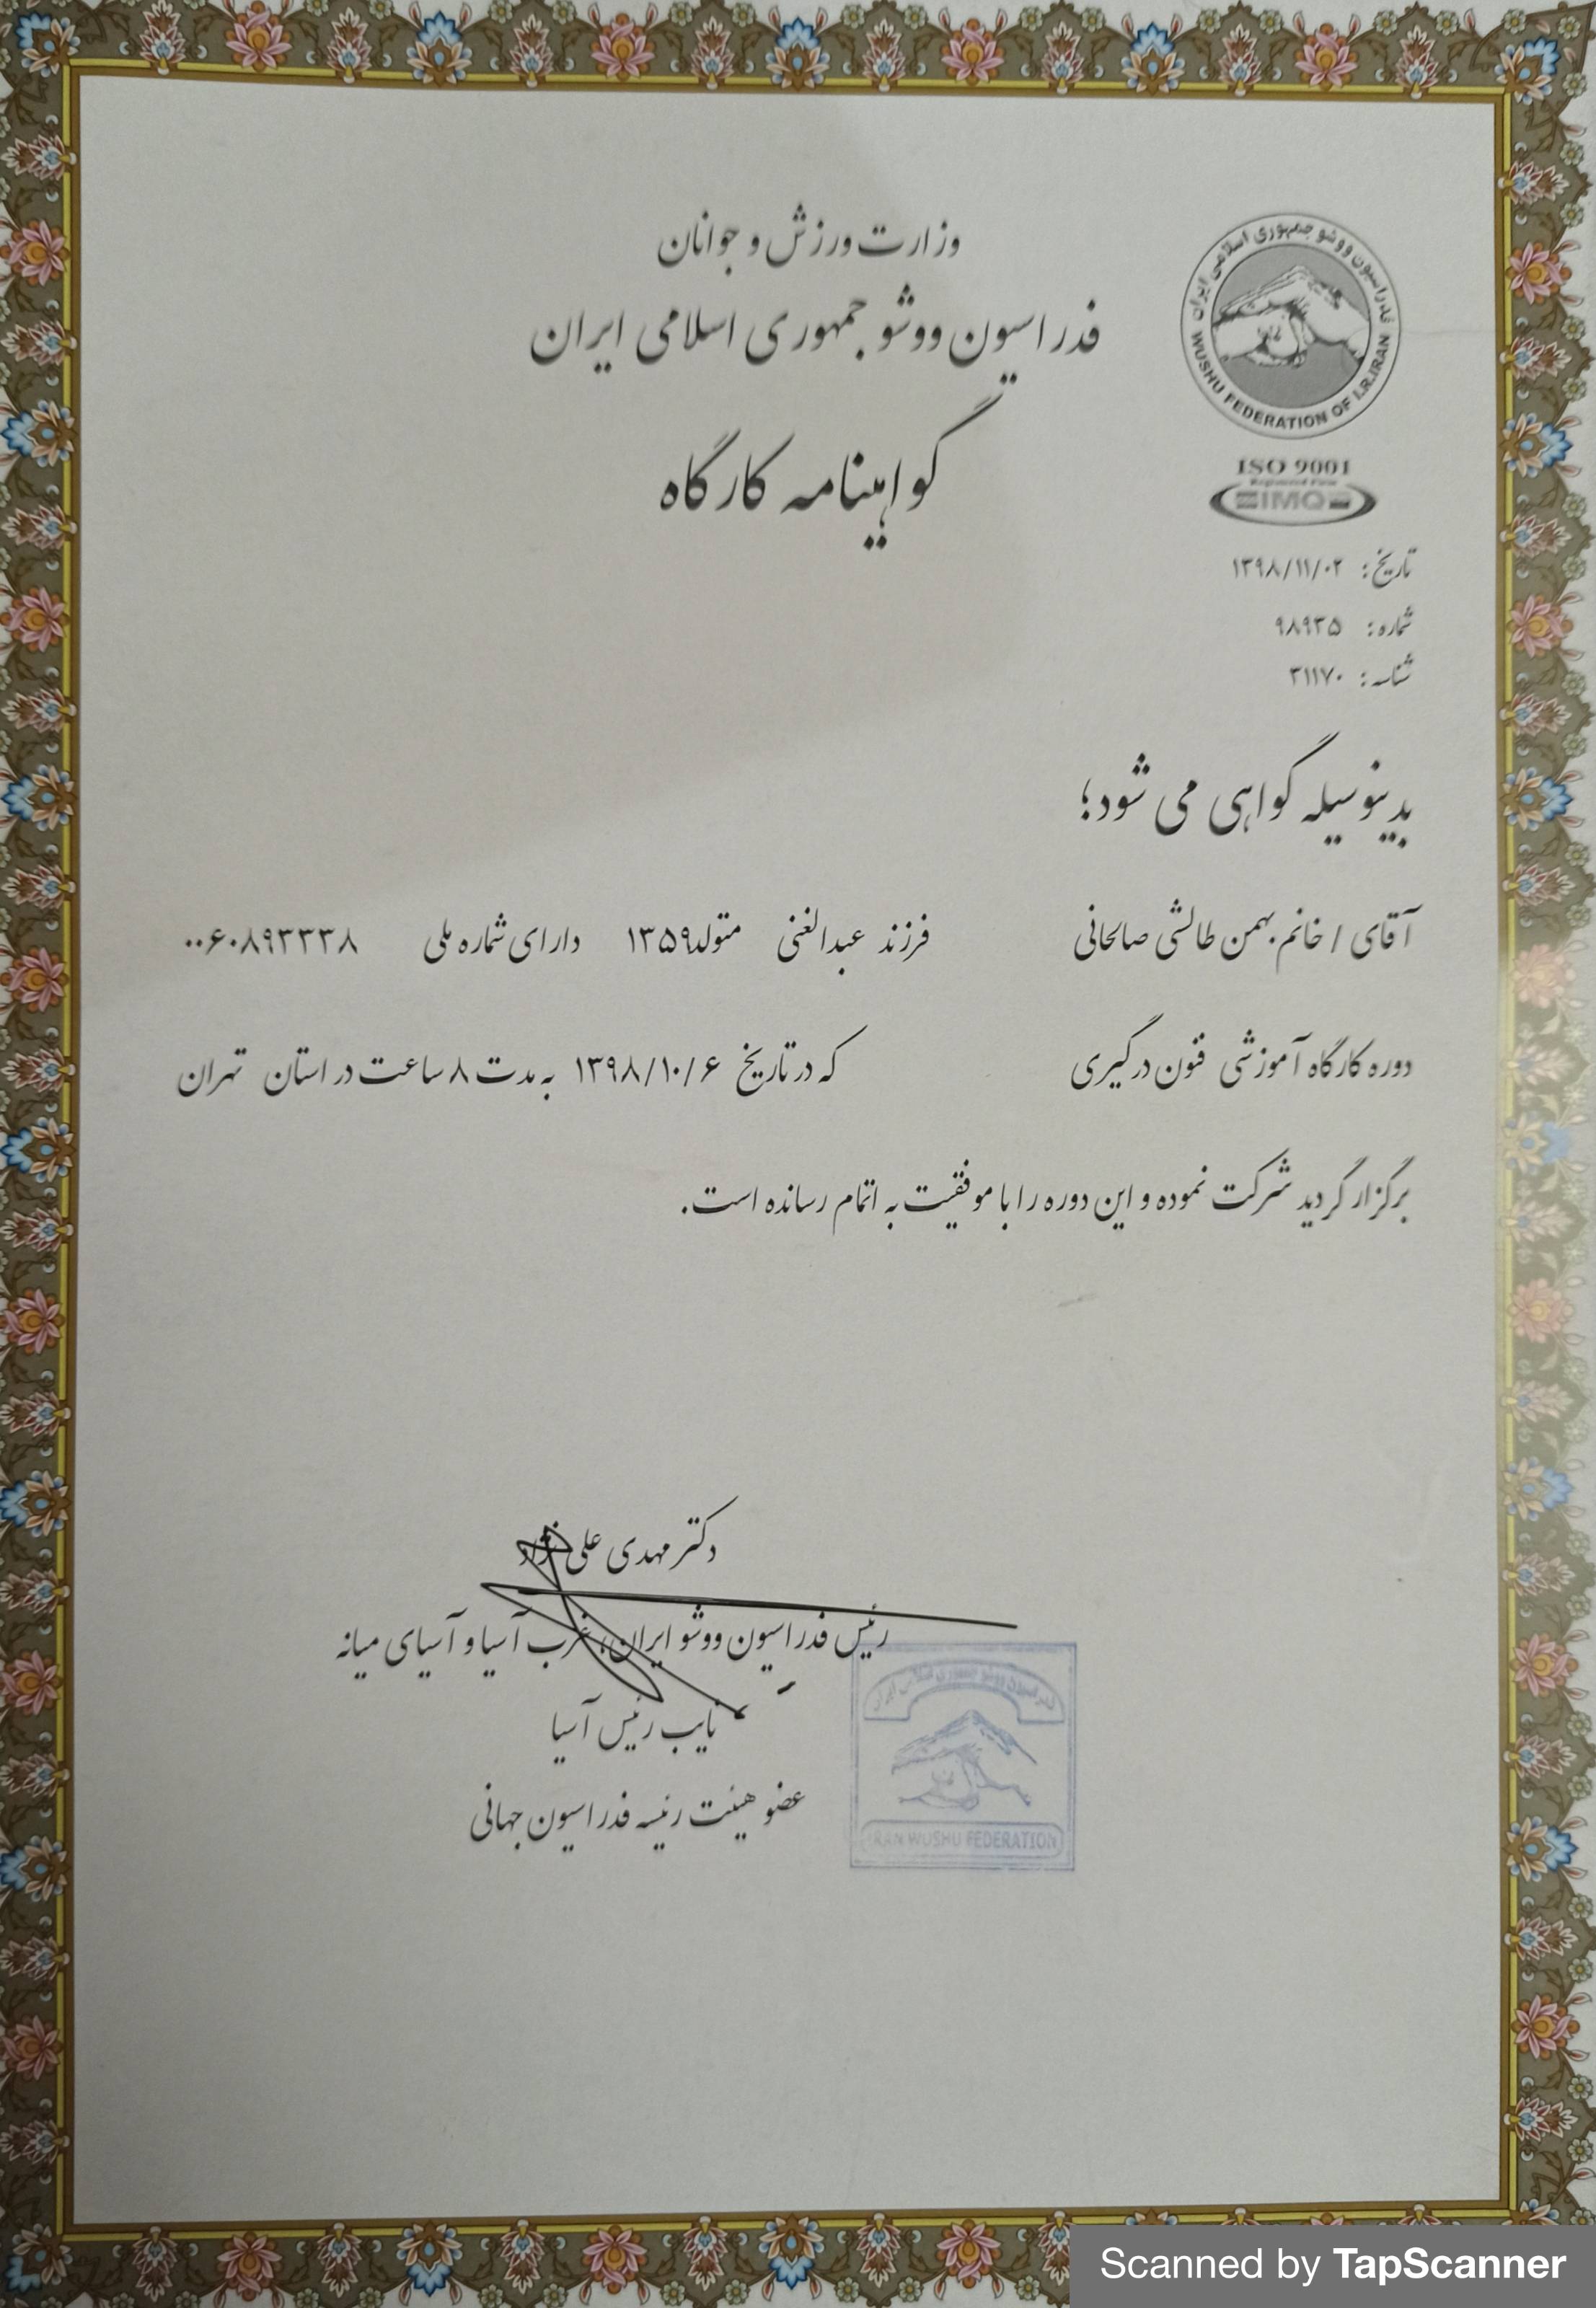 وزارت ورزش و جوانان
فدراسیون ووشو جمهوری اسلامی ایران
گواهینامه کارگاه
فدراسیون ووشو جمهوری اسلامی ایران
WUSHU FEDERATION OF I.R.IRAN
ISO 9001
Registered Firm
IMQ
تاریخ: ۱۳۹۸/۱۱/۰۲
شماره: ۹۸۹۳۵
شناسه: ۳۱۱۷۰
بدینوسیله گواهی می شود؛
آقای / خانم بهمن طالشی صالحانی فرزند عبدالغنی متولد ۱۳۵۹ دارای شماره ملی ۰۰۶۰۸۹۳۳۳۸
دوره کارگاه آموزشی فنون درگیری که در تاریخ ۱۳۹۸/۱۰/۶ به مدت ۸ ساعت در استان تهران
برگزار گردید شرکت نموده و این دوره را با موفقیت به اتمام رسانده است.
دکتر مهدی علی نژاد
رئیس فدراسیون ووشو ایران، غرب آسیا و آسیای میانه
نایب رئیس آسیا
عضو هیئت رئیسه فدراسیون جهانی
فدراسیون ووشو جمهوری اسلامی ایران
IRAN WUSHU FEDERATION
Scanned by TapScanner